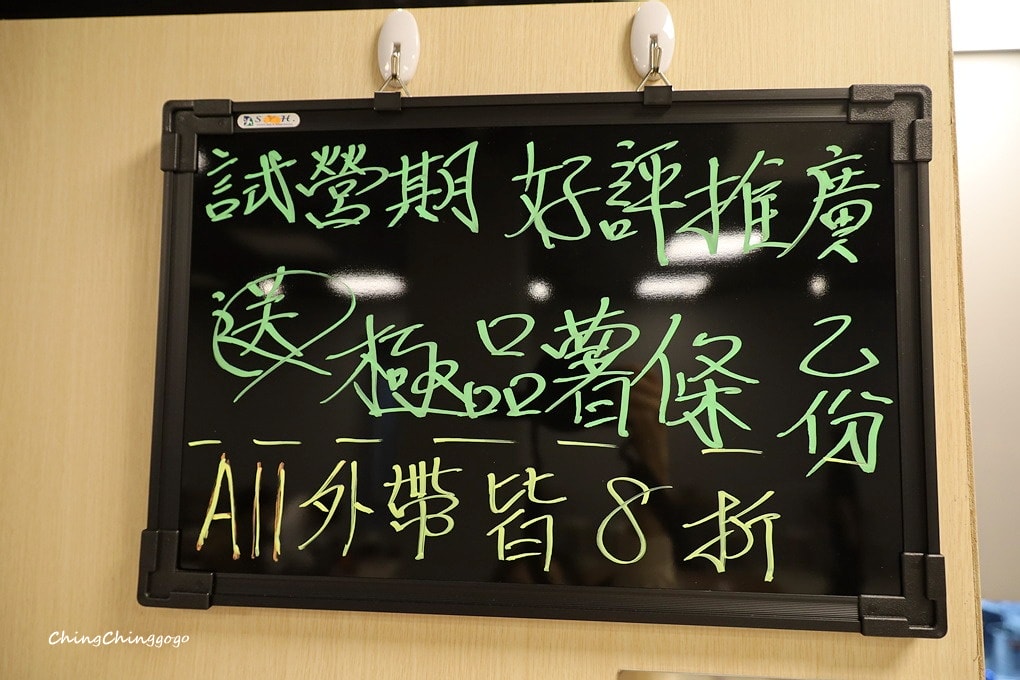 試營期 好評推廣
送 極品薯條 乙份
All 外帶 皆 8 折
ChingChinggogo